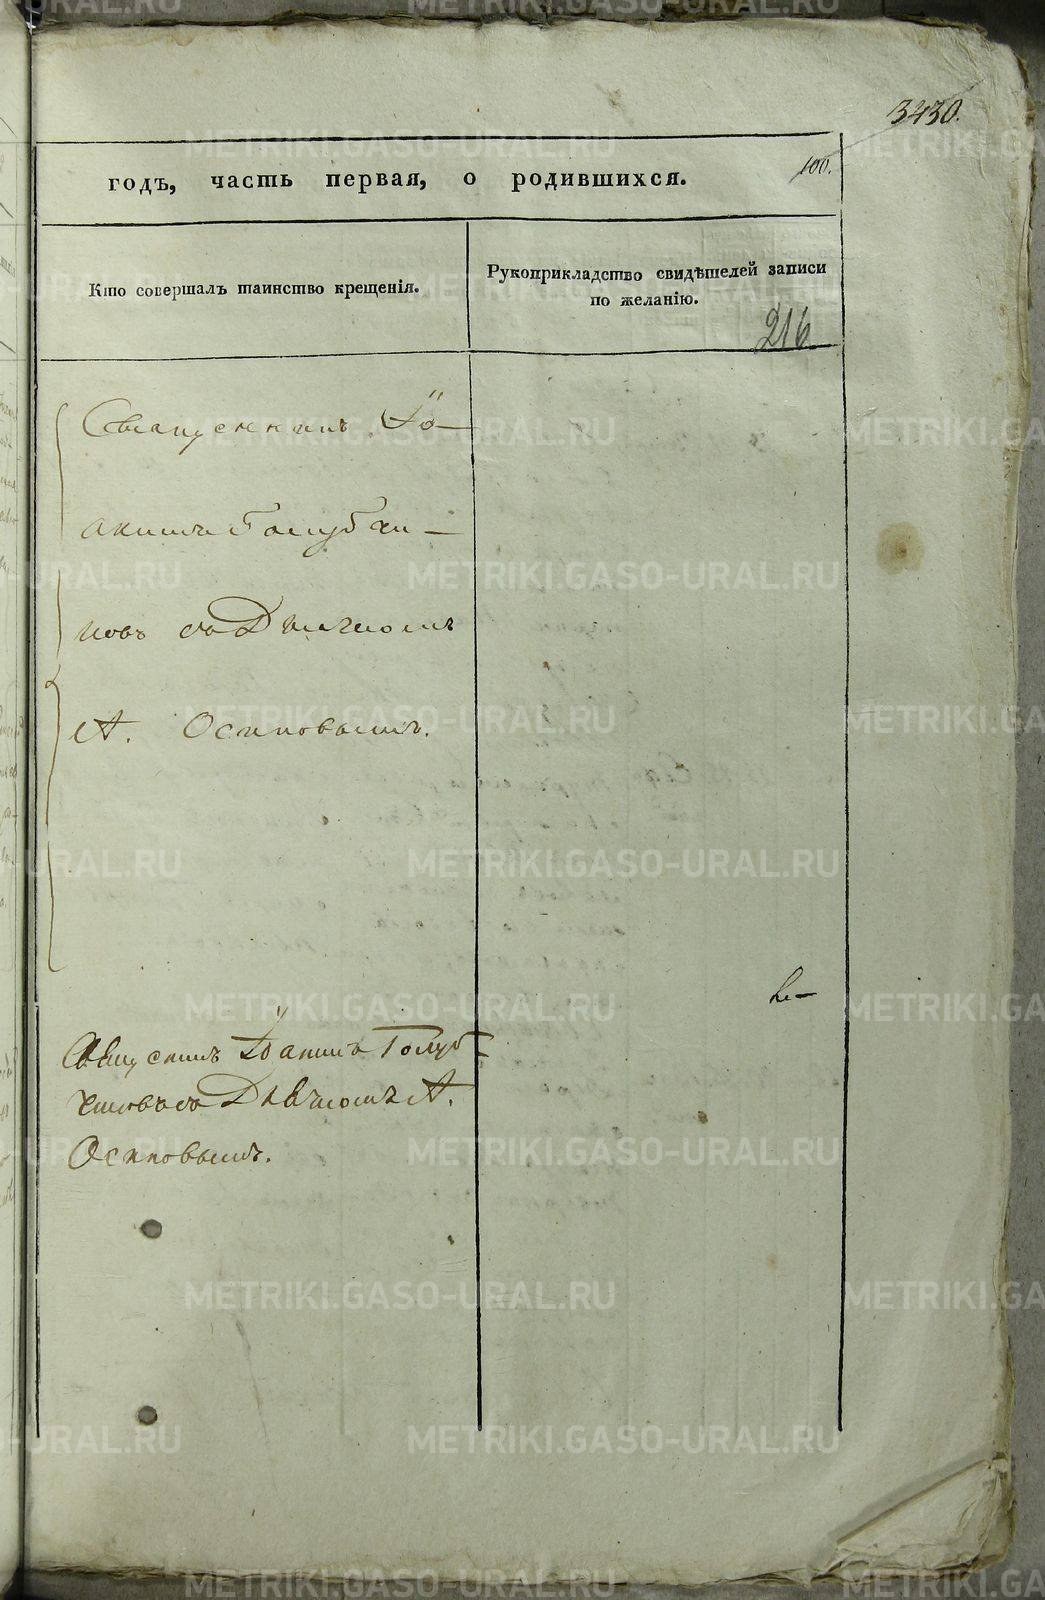 3430.
100.
годъ, часть первая, о родившихся.
Кто совершалъ таинство крещенія.
Рукоприкладство свидѣтелей записи
по желанію.
216
Священникъ Іо-
акимъ Голубчи-
ковъ съ Дьячкомъ
А. Осиповымъ.
Священникъ Іоакимъ Голуб
чиковъ съ Дьячкомъ А.
Осиповымъ.
METRIKI.GASO-URAL.RU